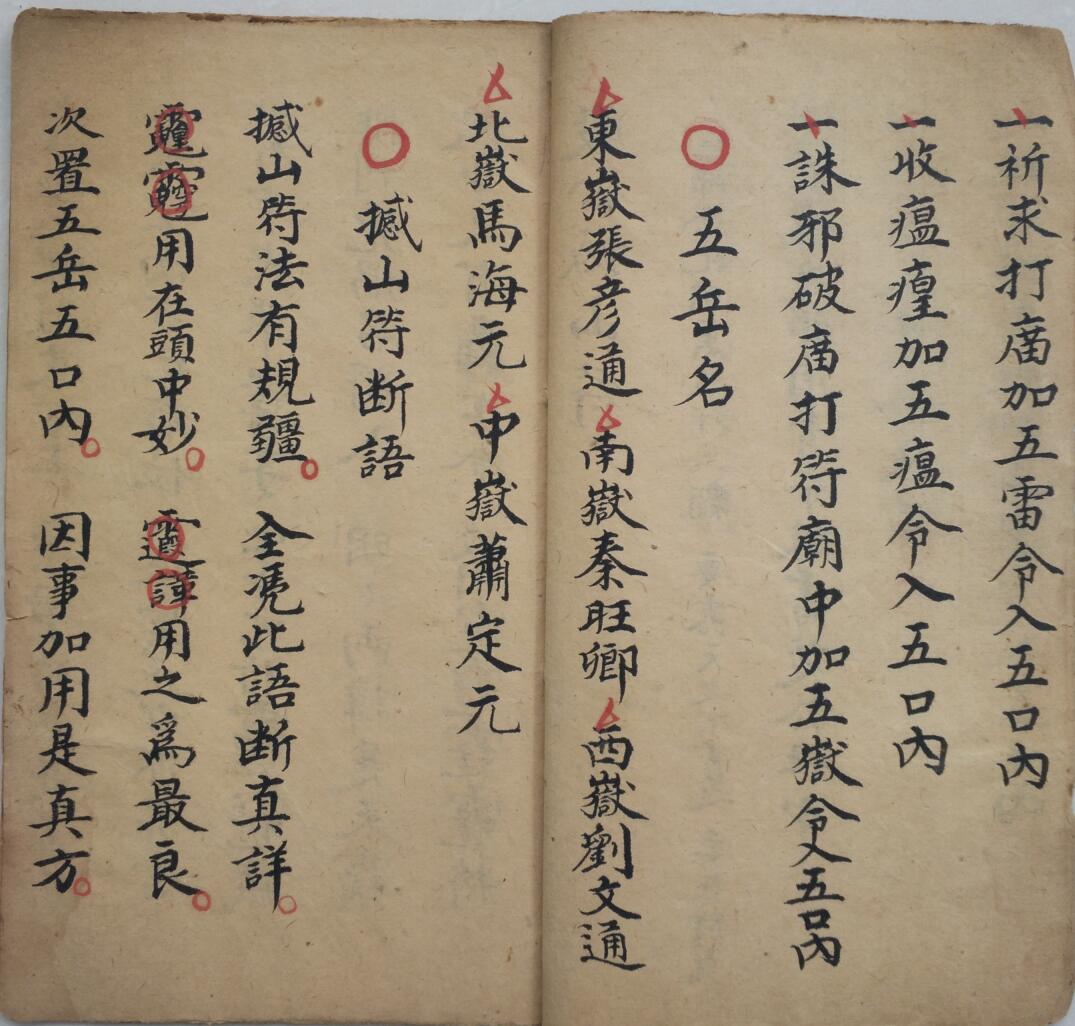 一祈求打庿加五雷令入五口內
一收瘟瘟加五瘟令入五口內
一誅邪破庿打符廟中加五嶽令入五口內
五岳名
東嶽張彥通 南嶽秦旺卿 西嶽劉文通
北嶽馬海元 中嶽蕭定元
撼山符斷語
撼山符法有規疆 全凴此語斷真詳
用在頭中妙 用之為最良
次置五岳五口內 因事加用是真方